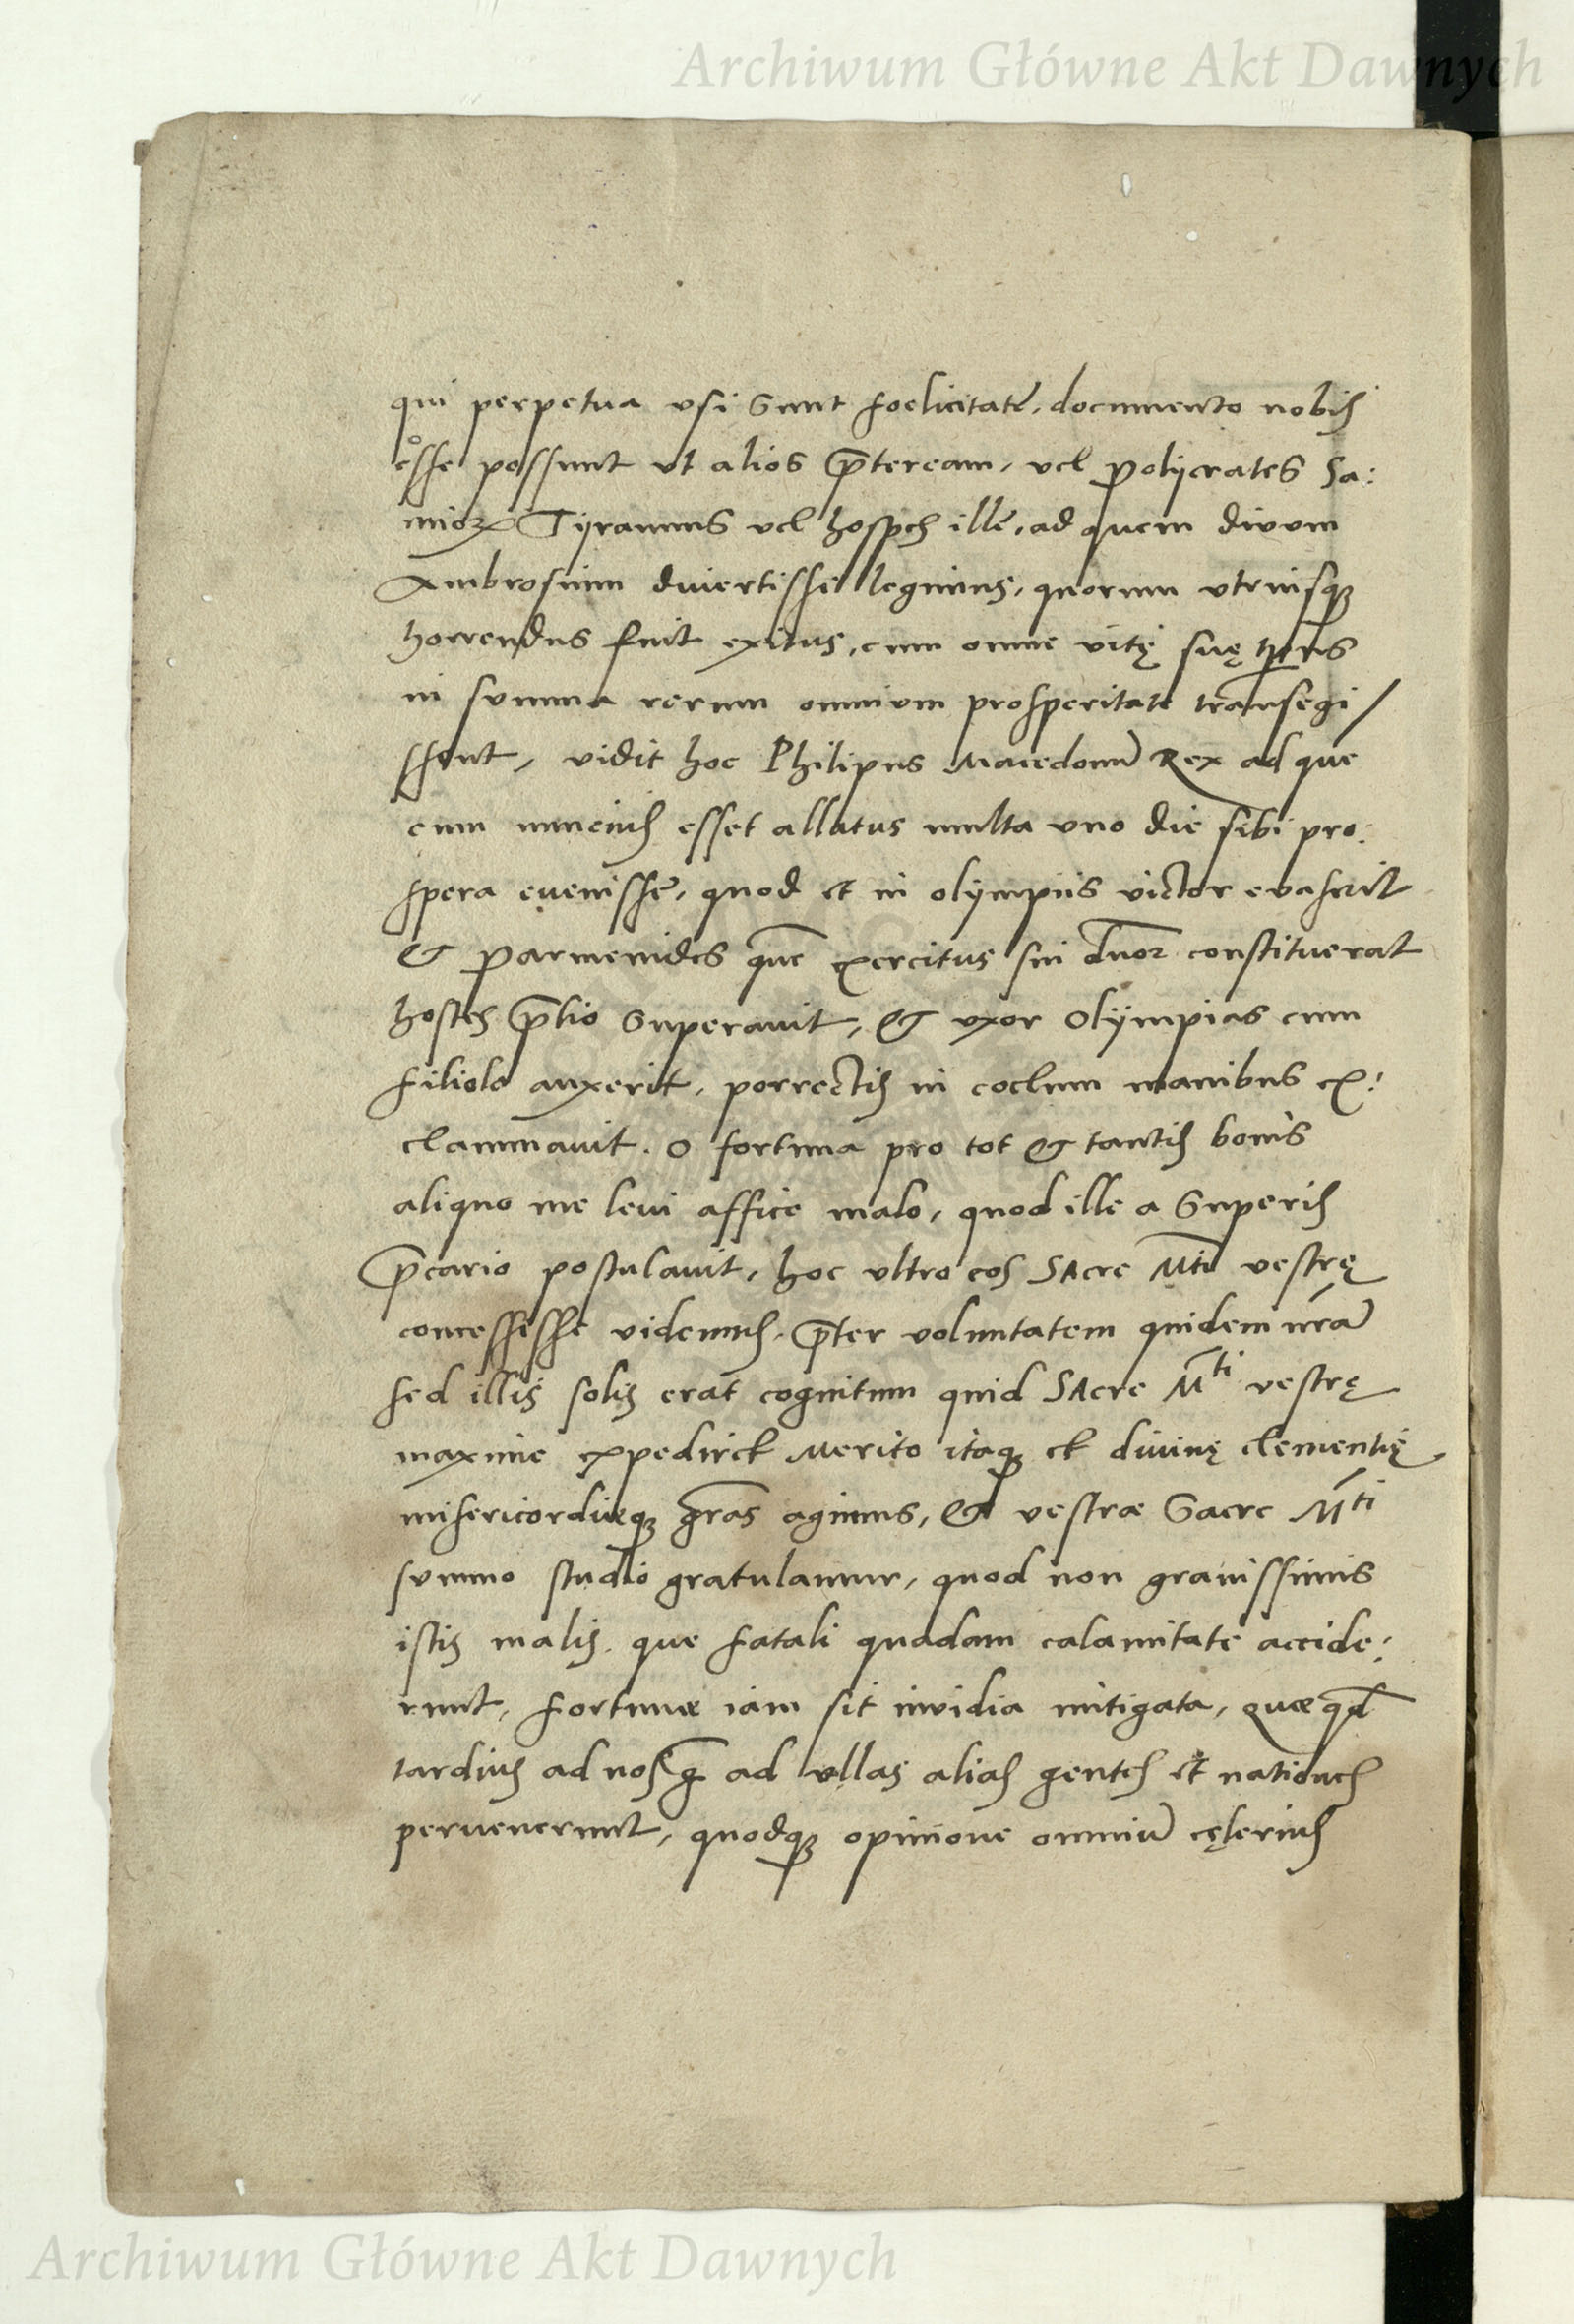 Archiwum Główne Akt Dawnych
qui perpetua usi sunt foelicitate, documento nobis
esse possunt ut alios p̄teream, vel Polÿcrates Sa:
mioꝝ Tÿrannus vel hospes ille, ad quem divum
Ambrosium divertisse legimus, quorum utriusqꝫ
horrendus fuit exitus, cum omne vitę suę tp̄us
in summa rerum omnium prosperitate transegi
ssent, vidit hoc Philipus Macedonū Rex ad quē
cum nuncius esset allatus multa uno die sibi pro:
spera evenisse, quod et in olÿmpiis victor evaserit
& Parmenides quē exercitus sui ductorē constituerat
hostes p̄lio superavit, & uxor Olÿmpias eum
filiolo auxerit, porrectis in coelum manibus ex:
clammavit. O fortuna pro tot & tantis bonis
aliquo me levi affice malo, quod ille a superis
p̄cario postulavit, hoc ultro eos Sacre Mti vestrę
concessisse videmus, p̄ter voluntatem quidem nr̄ā
sed illis solis erat cognitum quid Sacre Mti vestrę
maxime expediret Merito itaqꝫ et divinę clementię
misericordięqꝫ gr̄as agimus, & vestrae Sacre Mti
summo studio gratulamur, quod non gravissimis
istis malis que fatali quadam calamitate accide:
runt, fortunae iam sit invidia mitigata, quae qd̄
tardius ad nos q̄ ad ullas alias gentes et nationes
pervenerunt, quodqꝫ opinione omniū cęlerius
Archiwum Główne Akt Dawnych